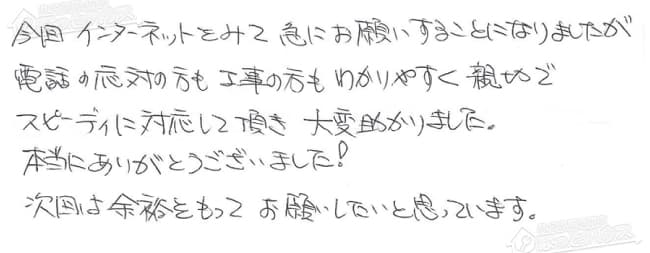 今回 インターネットをみて 急にお願いすることになりましたが
電話の応対の方も 工事の方も わかりやすく 親切で
スピーディに対応して頂き 大変助かりました。
本当にありがとうございました!
次回は余裕をもって お願いしたいと思っています。